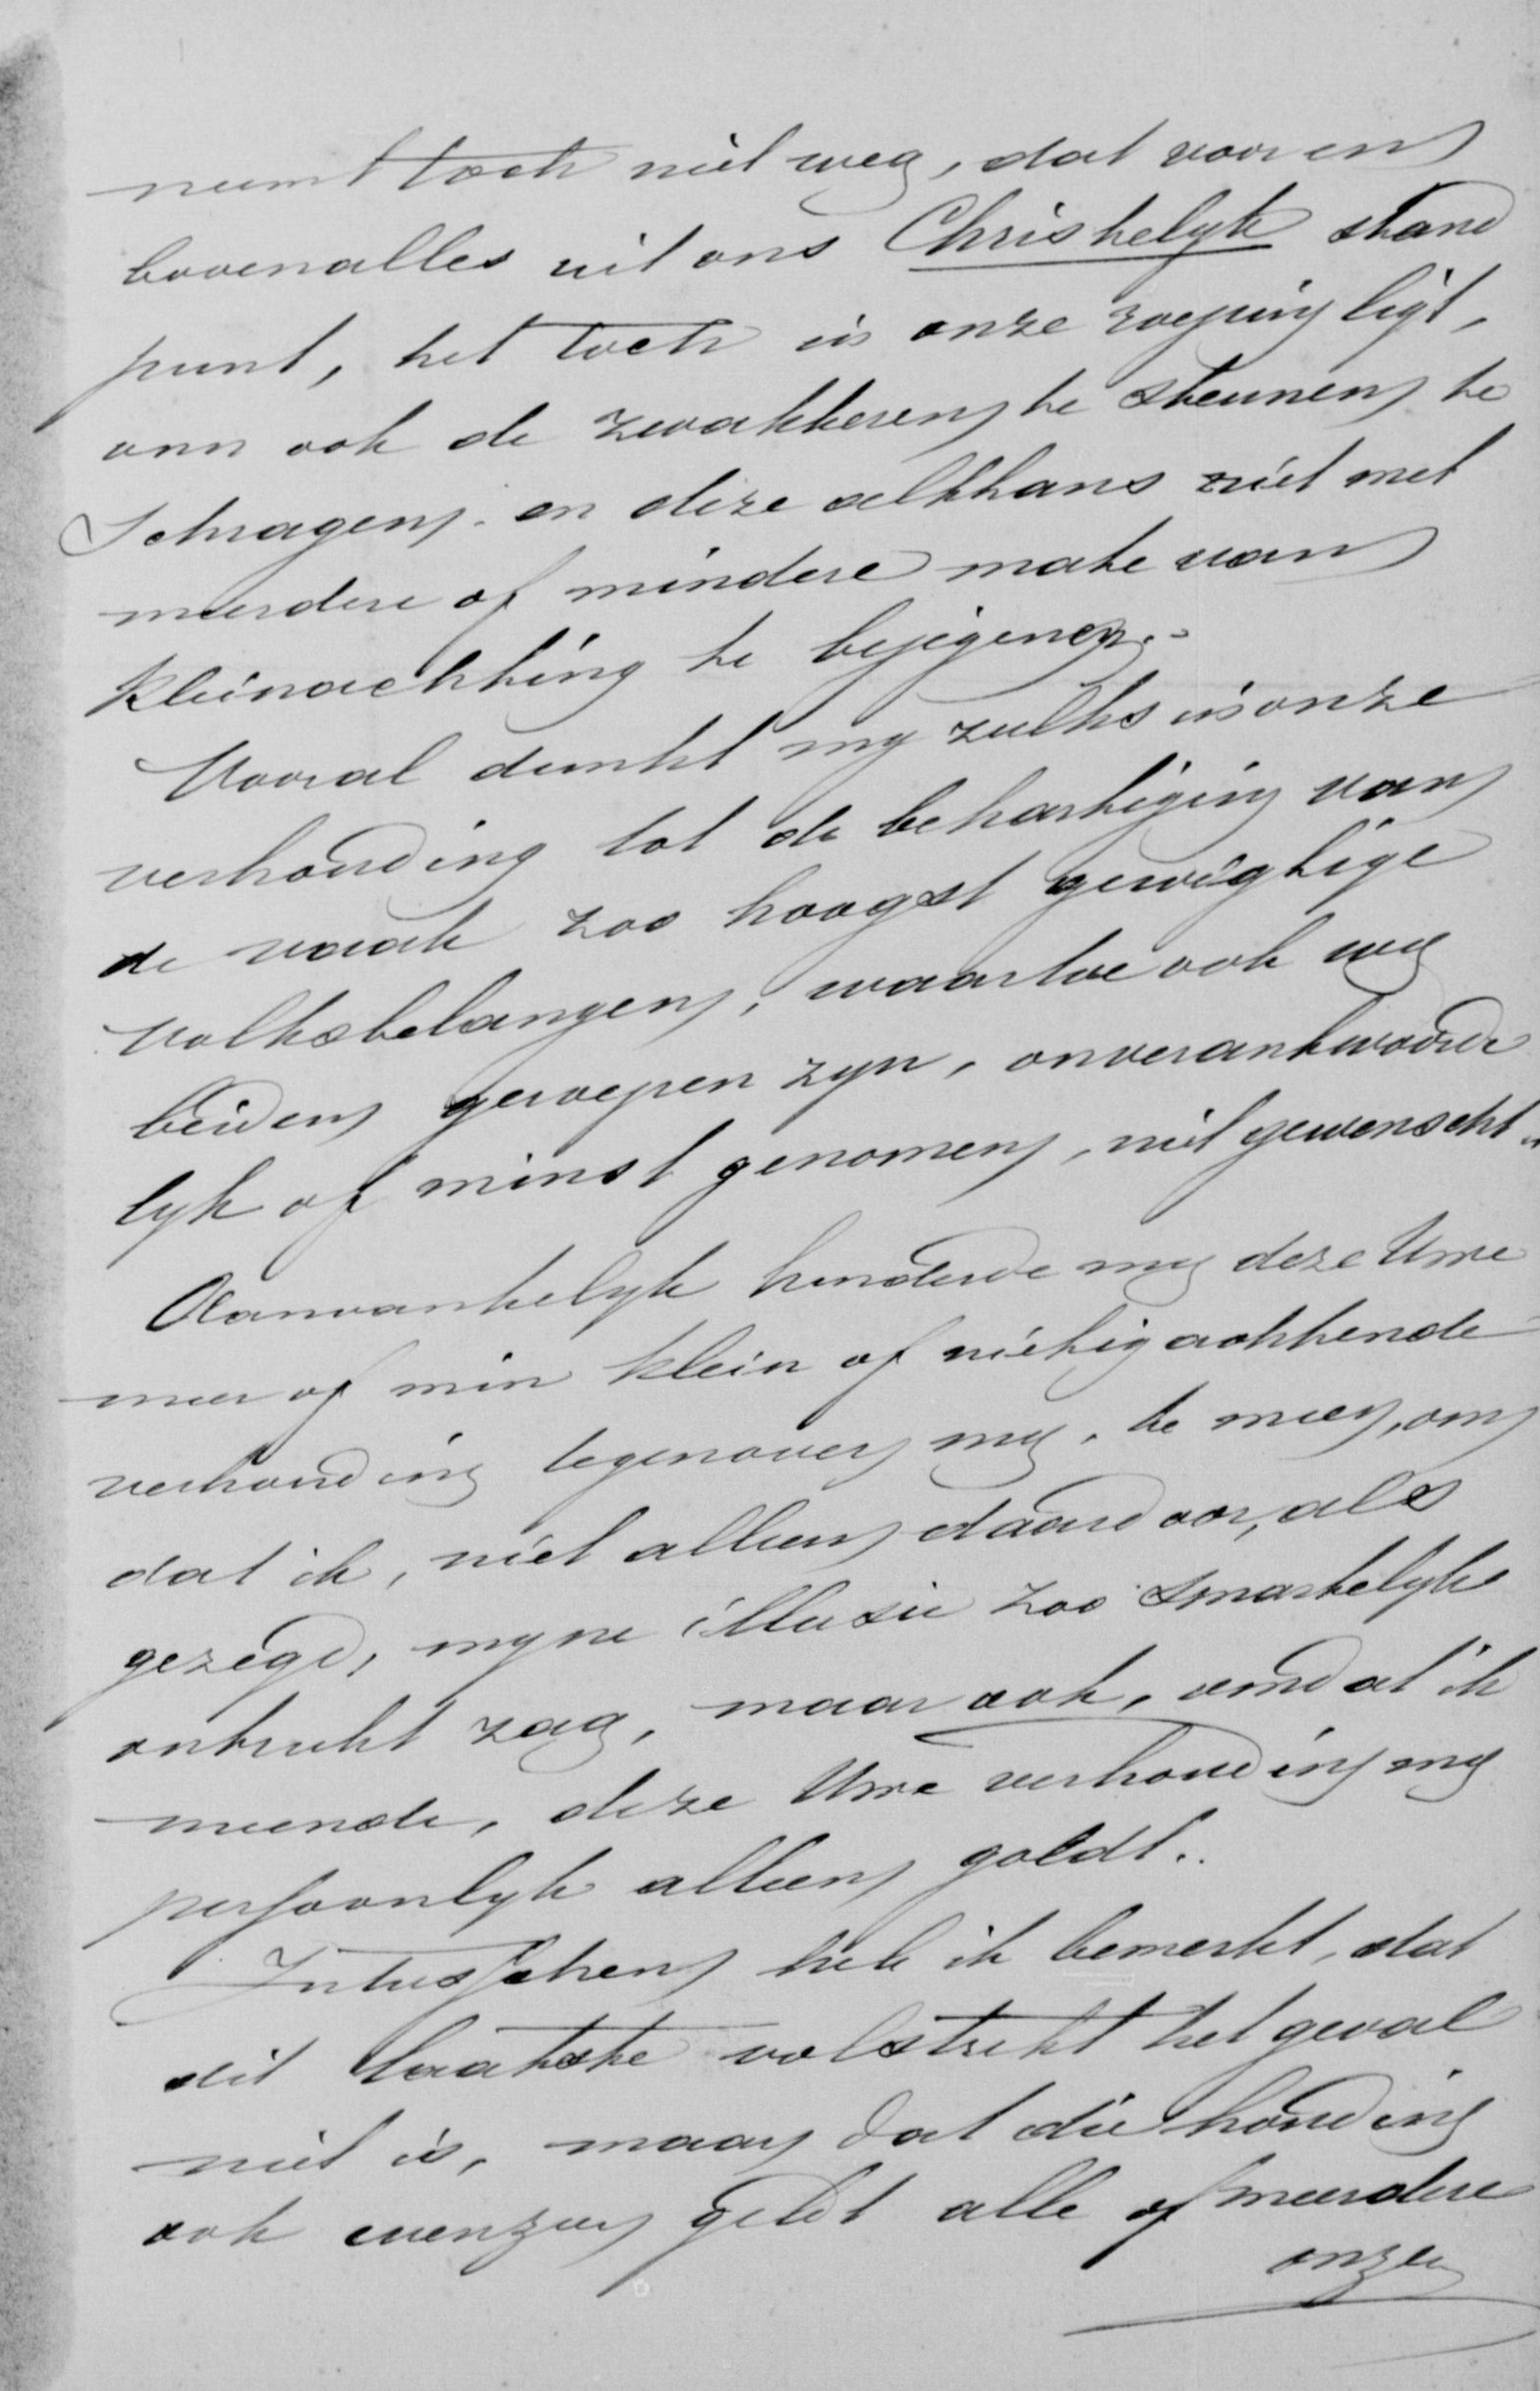 neemt toch niet weg, dat vooren
bovenalles uit ons Christelyk stand
punt, het toch in onze roeping ligt,
om ook de zwakkeren te steunen te
Schragen en deze althans niet met
meerdere of mindere mate van
kleinachting te bejegenen.
Vooral dunkt my zulks in onze
verhouding tot de behartiging van
de vaak zoo hoogst gewigtige
volksbelangen, waartoe ook wy
beiden geroepen zyn, onverantwoorde
lyk of minst genomen, niet gewenscht.
Aanvankelyk hinderde my deze Uwe
meer of min klein of nietigachtende
verhouding tegenover my, te meer, om
dat ik, niet alleen daardoor, als
gezegd, myne illusie zoo smartelyk
ontrukt zag, maar ook, omdat ik
meende, deze Uwe verhouding my
persoonlyk alleen goldt.
Intusschen heb ik bemerkt, dat
dit laatste volstrekt het geval
niet is, maar dat die houding
ook evenzeer geldt alle of meerdere
onzer